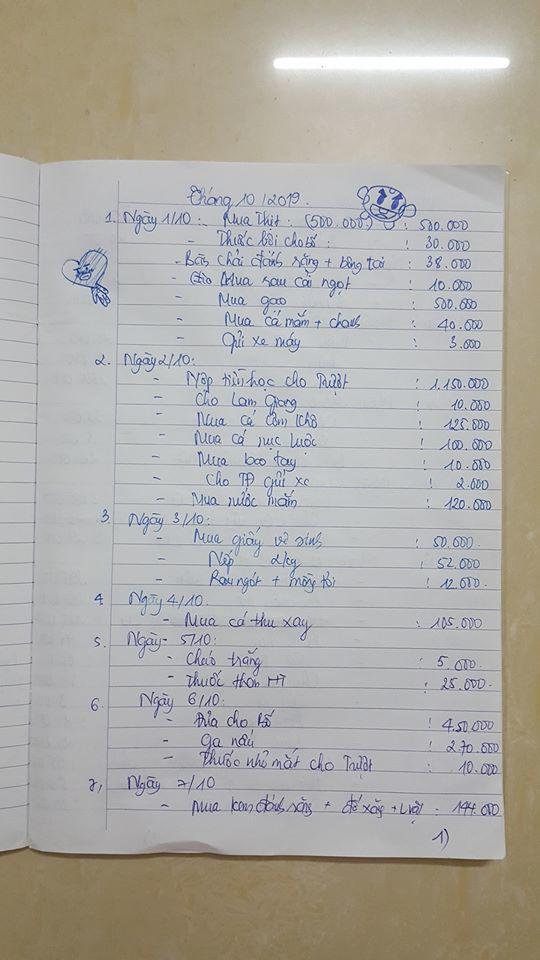 Tháng 10/2019.
1. Ngày 1/10: Mua thịt: (500.000) : 500.000
- Thuốc bôi cho bố : : 30.000
- Bàn chải đánh răng + bông tai : 38.000
- Mua rau cải ngọt : 10.000
- Mua gạo : 500.000
- Mua cá mắm + chanh : 40.000
- Gửi xe máy : 3.000
2. Ngày 2/10:
- Nộp tiền học cho Trượt : 1.150.000
- Cho Lam Giang : 10.000
- Mua cá cơm khô : 125.000
- Mua cá nục luộc : 100.000
- Mua bao tay : 10.000
- Cho TĐ gửi xe : 2.000
- Mua nước mắm : 120.000
3. Ngày 3/10:
- Mua giấy vệ sinh : 50.000
- Nếp 2kg : 52.000
- Rau ngót + mồng tơi : 12.000
4. Ngày 4/10.
- Mua cá thu xay : 105.000
5. Ngày 5/10:
- Cháo trắng : 5.000
- Thuốc HT : 25.000
6. Ngày 6/10:
- Đưa cho Bố : 450.000
- Ga nấu : 270.000
- Thuốc nhỏ mắt cho Trượt : 10.000
7, Ngày 7/10
- Mua kem đánh răng + + : 144.000
1)